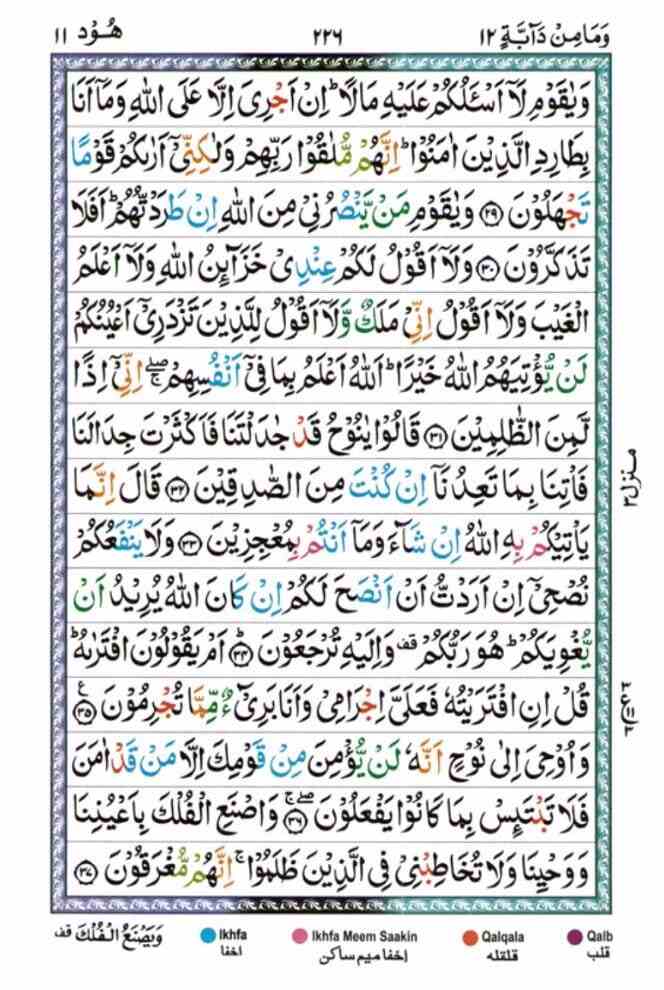 وَمَا مِنْ دَآبَّةٍ ١٢ ٢٢٦ هُوْد ١١
وَيٰقَوْمِ لَاۤ اَسْـَٔلُكُمْ عَلَيْهِ مَالًا ؕ اِنْ اَجْرِىَ اِلَّا عَلَى اللّٰهِ وَمَاۤ اَنَا
بِطَارِدِ الَّذِيْنَ اٰمَنُوْا ؕ اِنَّهُمْ مُّلٰقُوْا رَبِّهِمْ وَلٰكِنِّىْۤ اَرٰىكُمْ قَوْمًا
تَجْهَلُوْنَ ﴿٢٩﴾ وَيٰقَوْمِ مَنْ يَّنْصُرُنِىْ مِنَ اللّٰهِ اِنْ طَرَدْتُّهُمْ ؕ اَفَلَا
تَذَكَّرُوْنَ ﴿٣٠﴾ وَلَاۤ اَقُوْلُ لَكُمْ عِنْدِىْ خَزَآئِنُ اللّٰهِ وَلَاۤ اَعْلَمُ
الْغَيْبَ وَلَاۤ اَقُوْلُ اِنِّىْ مَلَكٌ وَّلَاۤ اَقُوْلُ لِلَّذِيْنَ تَزْدَرِىْۤ اَعْيُنُكُمْ
لَنْ يُّؤْتِيَهُمُ اللّٰهُ خَيْرًا ؕ اَللّٰهُ اَعْلَمُ بِمَا فِىْۤ اَنْفُسِهِمْ ۖۚ اِنِّىْۤ اِذًا
لَّمِنَ الظّٰلِمِيْنَ ﴿٣١﴾ قَالُوْا يٰنُوْحُ قَدْ جٰدَلْتَنَا فَاَكْثَرْتَ جِدَالَنَا
فَاْتِنَا بِمَا تَعِدُنَاۤ اِنْ كُنْتَ مِنَ الصّٰدِقِيْنَ ﴿٣٢﴾ قَالَ اِنَّمَا
يَاْتِيْكُمْ بِهِ اللّٰهُ اِنْ شَآءَ وَمَاۤ اَنْتُمْ بِمُعْجِزِيْنَ ﴿٣٣﴾ وَلَا يَنْفَعُكُمْ
نُصْحِىْۤ اِنْ اَرَدْتُّ اَنْ اَنْصَحَ لَكُمْ اِنْ كَانَ اللّٰهُ يُرِيْدُ اَنْ
يُّغْوِيَكُمْ ؕ هُوَ رَبُّكُمْ قف وَاِلَيْهِ تُرْجَعُوْنَ ﴿٣٤﴾ اَمْ يَقُوْلُوْنَ افْتَرٰىهُ ؕ
قُلْ اِنِ افْتَرَيْتُهٗ فَعَلَىَّ اِجْرَامِىْ وَاَنَا بَرِىْٓءٌ مِّمَّا تُجْرِمُوْنَ ﴿٣٥﴾ ع
وَاُوْحِىَ اِلٰى نُوْحٍ اَنَّهٗ لَنْ يُّؤْمِنَ مِنْ قَوْمِكَ اِلَّا مَنْ قَدْ اٰمَنَ
فَلَا تَبْتَئِسْ بِمَا كَانُوْا يَفْعَلُوْنَ ۖۚ ﴿٣٦﴾ وَاصْنَعِ الْفُلْكَ بِاَعْيُنِنَا
وَوَحْيِنَا وَلَا تُخَاطِبْنِىْ فِى الَّذِيْنَ ظَلَمُوْا ۚ اِنَّهُمْ مُّغْرَقُوْنَ ﴿٣٧﴾
منزل ٣
وَيَصْنَعُ الْفُلْكَ قف
Ikhfa Ikhfa Meem Saakin Qalqala Qalb
اخفا اخفا میم ساکن قلقله قلب